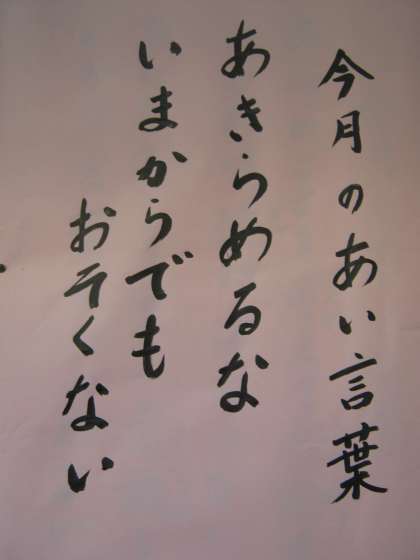 今月のあい言葉
あきらめるな
いまからでも
おそくない